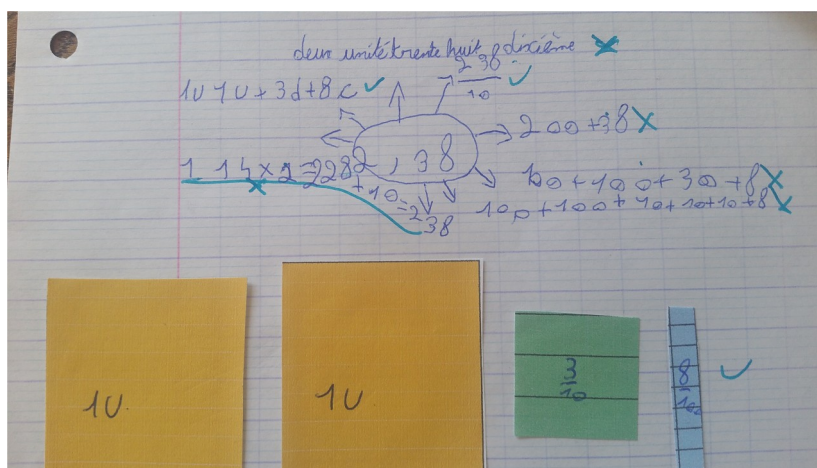 deux unité trente huit dixième
1U 1U + 3d + 8c
238
10
200 + 38
2,38
1 14 × 2 = 228
+ 10 = 238
100 + 100 + 30 + 8
100 + 100 + 10 + 10 + 10 + 8
1U.
1U
3
10
8
100